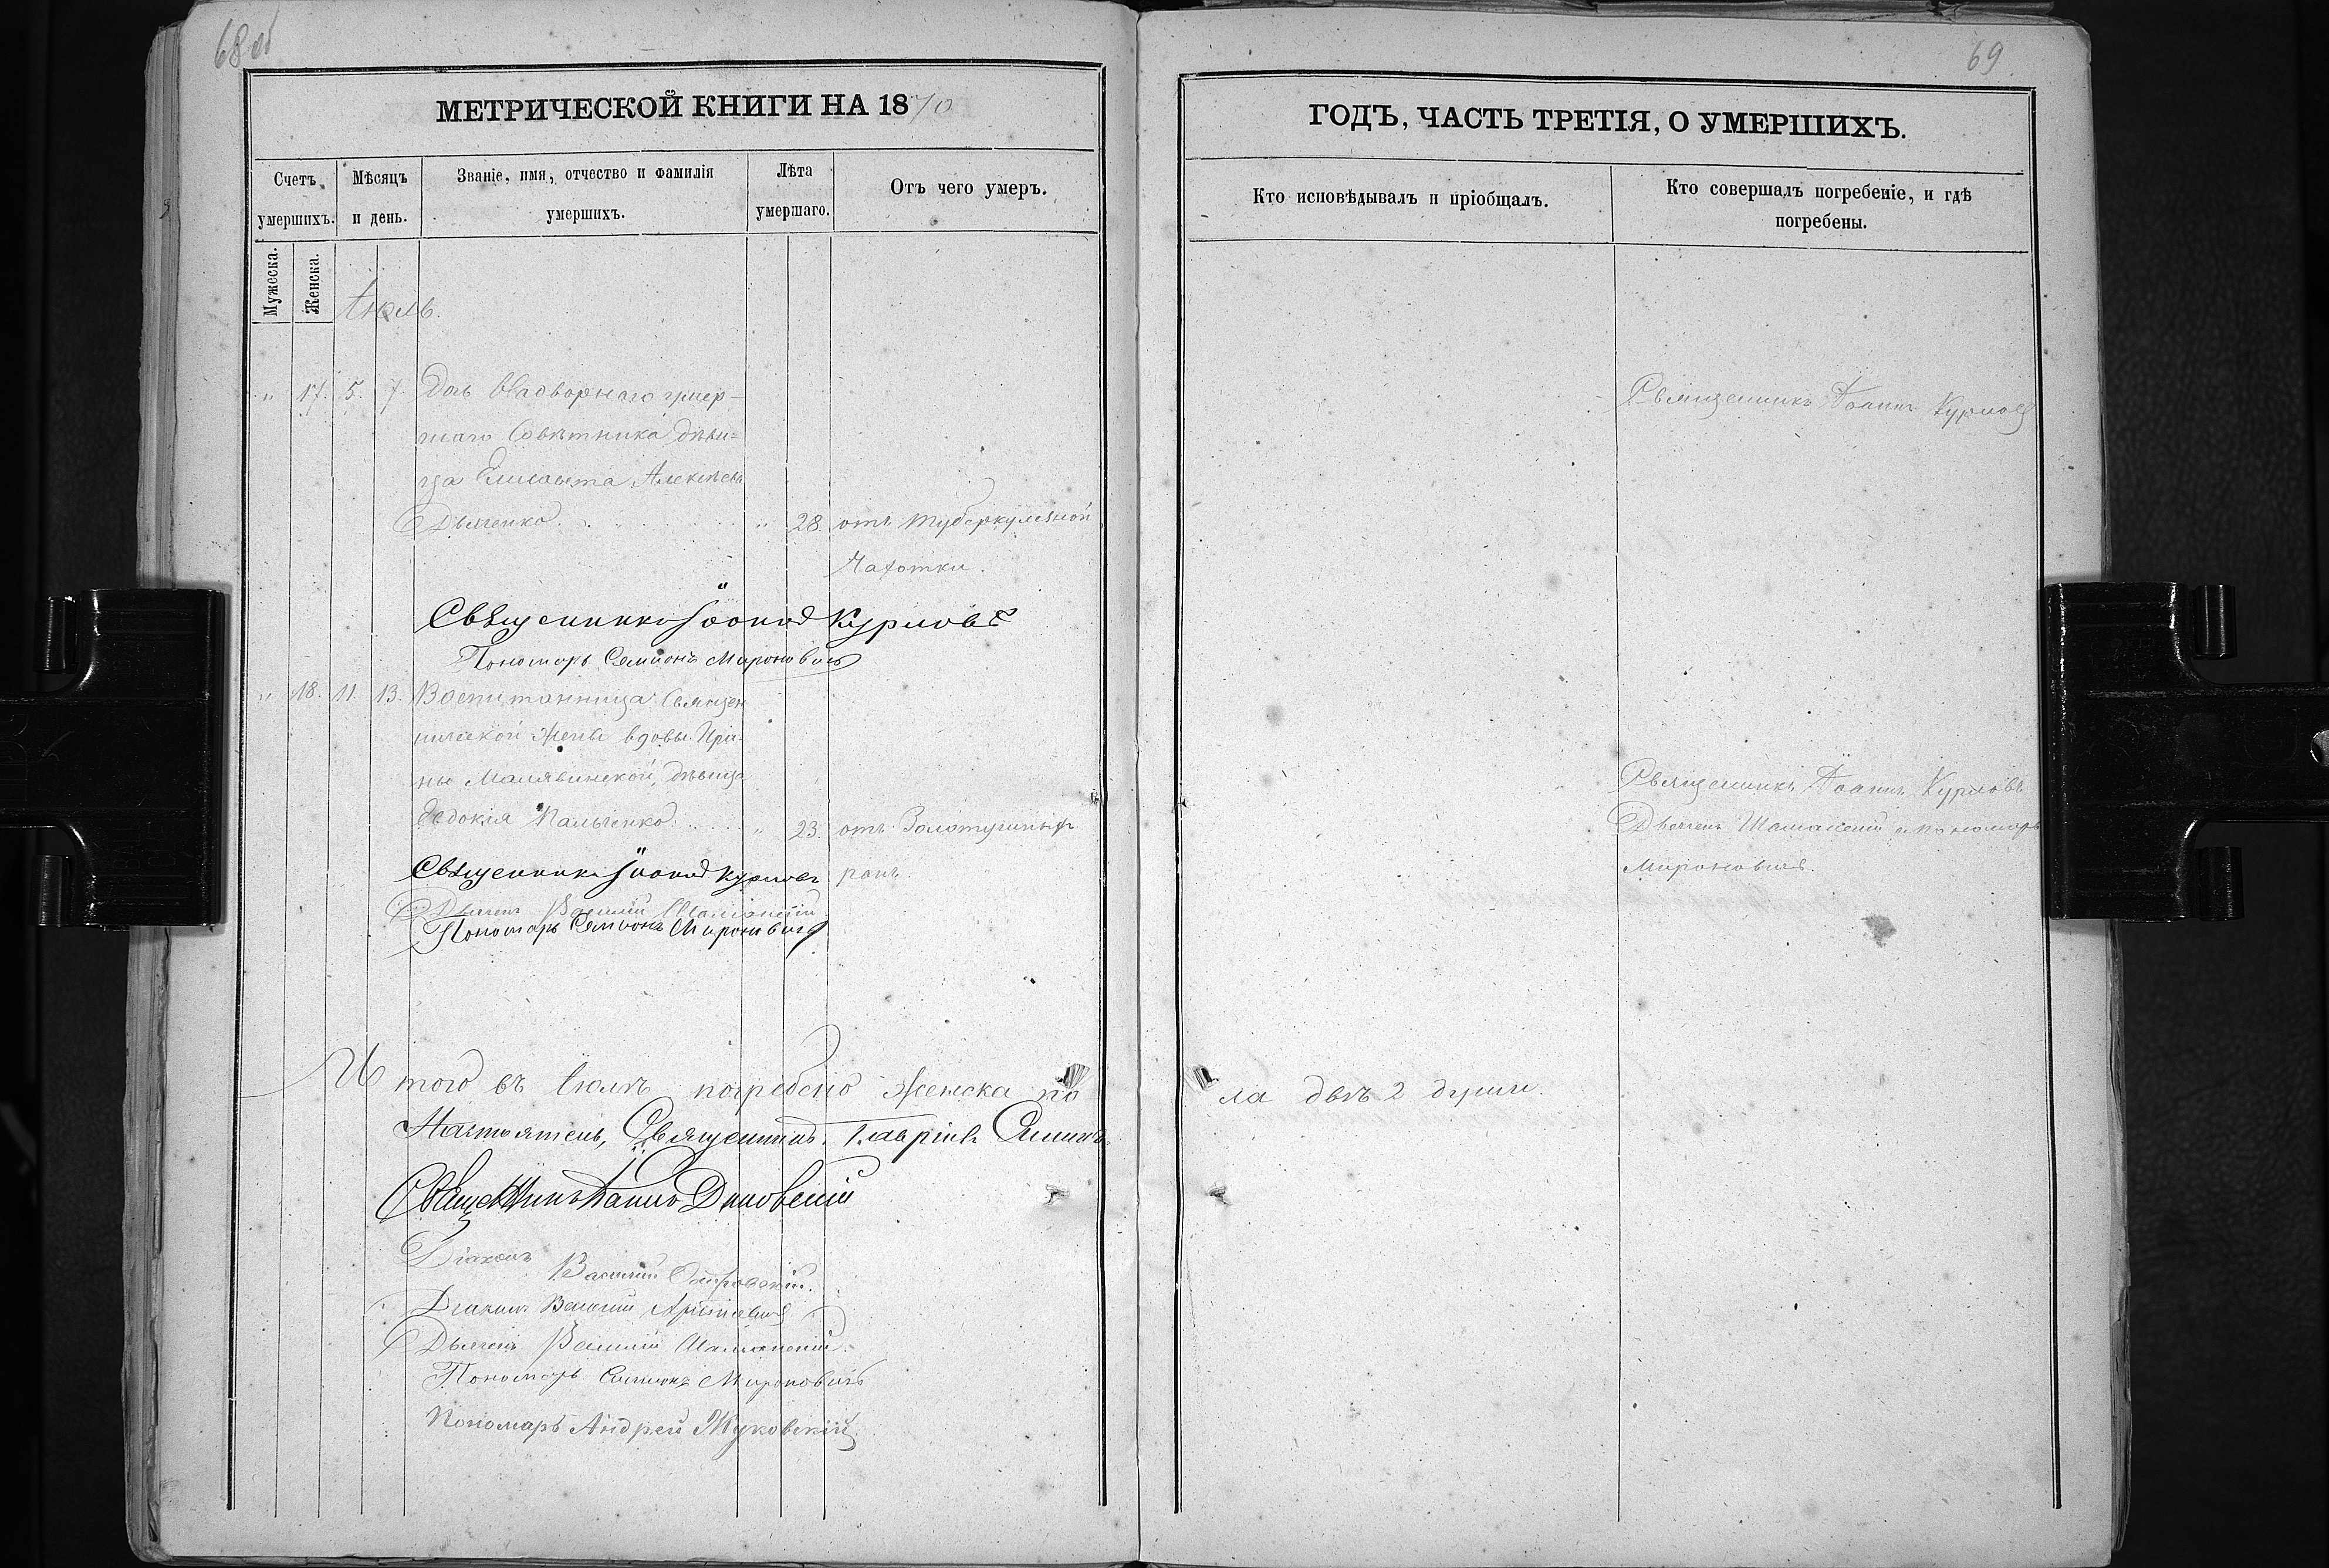 68 об
МЕТРИЧЕСКОЙ КНИГИ НА 1870
Счетъ умершихъ.
Мѣсяцъ и день.
Званіе, имя, отчество и фамилія умершихъ.
Лѣта умершаго.
Отъ чего умеръ.
Мужеска.
Женска.
Іюль.
" 17. 5. 7. Дочь Надворнаго умер-
шаго Совѣтника дѣви-
ца Елисавета Алексѣева
Дьяченко. " 28. отъ туберкулезной
Чахотки.
Священникъ Іоаннъ Курловъ
Пономарь Симеонъ Мироновичъ
" 18. 11. 13. Воспитанница Священ
нической жены вдовы Ири-
ны Малявинской, дѣвица
Евдокія Пальченко. " 23. отъ Золотушныхъ
Священникъ Іоаннъ Курловъ ранъ.
Дьячекъ Василій
Пономарь Симеонъ Мироновичъ
Итого въ Іюлѣ погребено женска по
Настоятель, Священникъ
Священникъ
Діаконъ
Василій
Діаконъ Василій
Дьячекъ Василій
Пономарь Симеонъ Мироновичъ
Пономарь Андрей Жуковскій
69
ГОДЪ, ЧАСТЬ ТРЕТІЯ, О УМЕРШИХЪ.
Кто исповѣдывалъ и пріобщалъ.
Кто совершалъ погребеніе, и гдѣ
погребены.
Священникъ Іоаннъ Курловъ
Священникъ Іоаннъ Курловъ
Дьячекъ и пономарь
Мироновичъ.
ла двѣ 2 души.